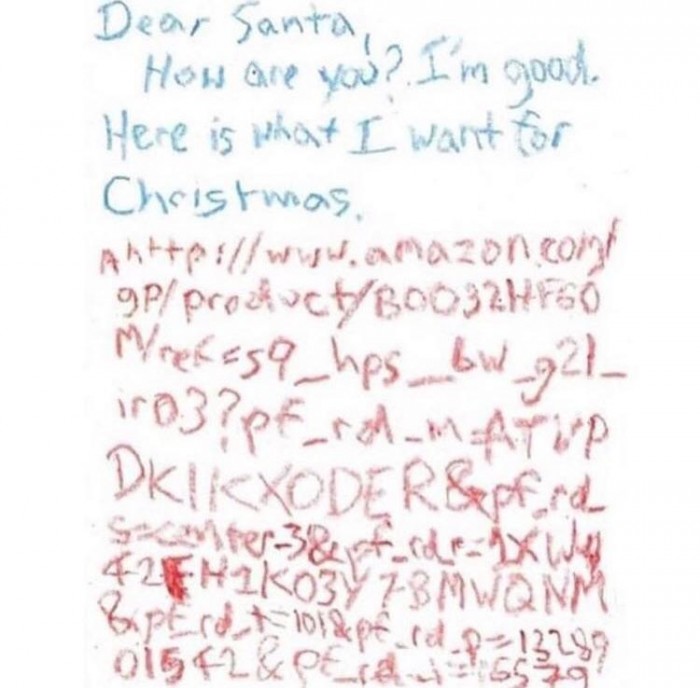 Dear Santa,
How are you? I'm good.
Here is what I want for
Christmas.
A http://www.amazon.com/
gp/product/B0032HF60
M/ref=s9_hps_bw_g21_
ir03?pf_rd_m=ATVP
DKIKX0DER&pf_rd_
s=center-3&pf_rd_r=1XWY
42FH1K03Y78MWQNM
&pf_rd_t=101&pf_rd_p=13289
01542&pf_rd_i=16579